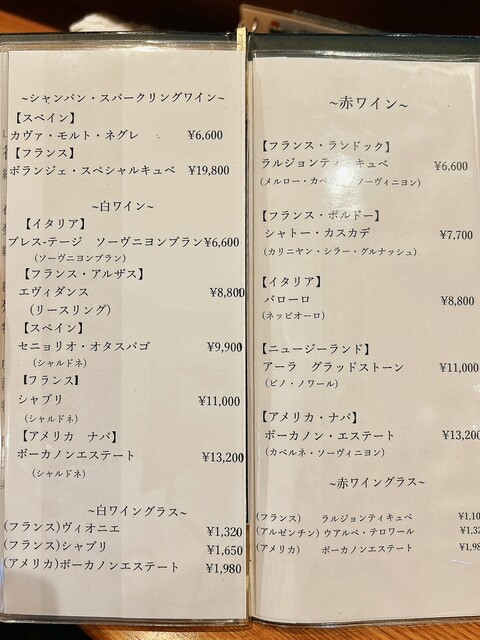 ~シャンパン・スパークリングワイン~
【スペイン】
カヴァ・モルト・ネグレ ¥6,600
【フランス】
ボランジェ・スペシャルキュベ ¥19,800
~白ワイン~
【イタリア】
プレス-テージ ソーヴニヨンブラン¥6,600
(ソーヴニヨンブラン)
【フランス・アルザス】
エヴィダンス ¥8,800
(リースリング)
【スペイン】
セニョリオ・オタスバゴ ¥9,900
(シャルドネ)
【フランス】
シャブリ ¥11,000
(シャルドネ)
【アメリカ ナパ】
ボーカノンエステート ¥13,200
(シャルドネ)
~白ワイングラス~
(フランス)ヴィオニエ ¥1,320
(フランス)シャブリ ¥1,650
(アメリカ)ボーカノンエステート ¥1,980
~赤ワイン~
【フランス・ランドック】
ラルジョンティ キュベ ¥6,600
(メルロー・カベ ソーヴィニヨン)
【フランス・ボルドー】
シャトー・カスカデ ¥7,700
(カリニャン・シラー・グルナッシュ)
【イタリア】
バローロ ¥8,800
(ネッビオーロ)
【ニュージーランド】
アーラ グラッドストーン ¥11,000
(ピノ・ノワール)
【アメリカ・ナパ】
ボーカノン・エステート ¥13,200
(カベルネ・ソーヴィニヨン)
~赤ワイングラス~
(フランス) ラルジョンティキュベ ¥1,10
(アルゼンチン) ウアルペ・テロワール ¥1,32
(アメリカ) ボーカノンエステート ¥1,98